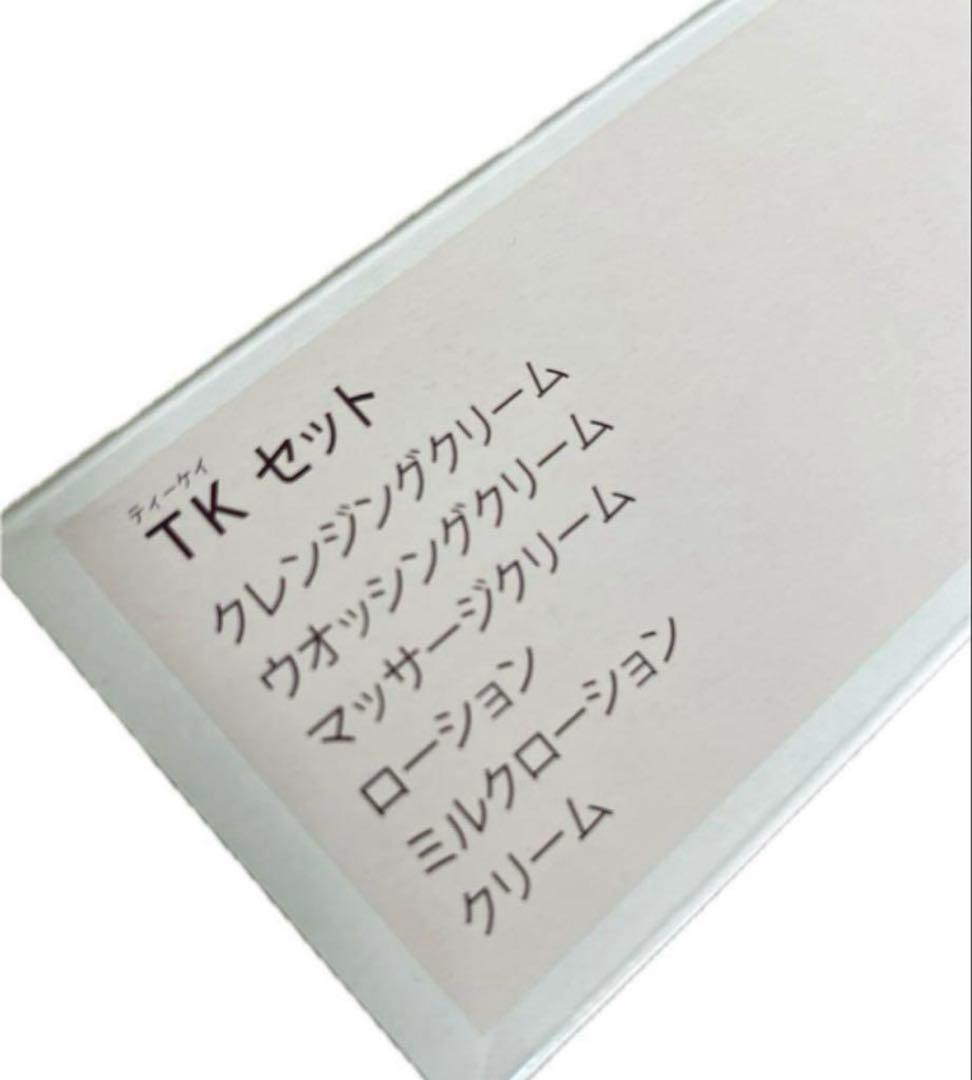 ティーケイ
TK セット
クレンジングクリーム
ウオッシングクリーム
マッサージクリーム
ローション
ミルクローション
クリーム